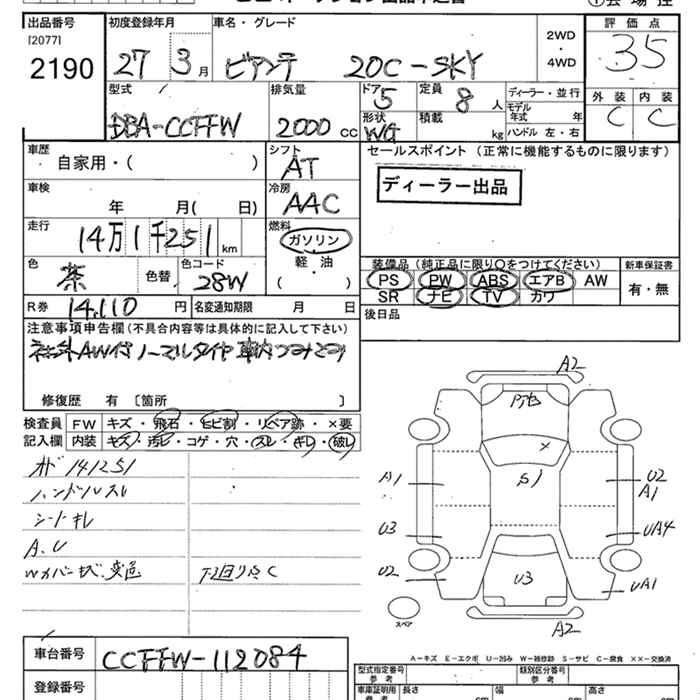 出品番号 初度登録年月 車名・グレード 評価点
[2077]
2190 27 3月 ビアンテ 20C-SKY 2WD・4WD 3.5
型式 排気量 ドア 定員 ディーラー・並行 外装 内装
DBA-CCFFW 2000 cc 5 8人 モデル年式 年 C C
形状 WG 積載 kg ハンドル 左・右
車歴 シフト セールスポイント (正常に機能するものに限ります)
自家用・( ) AT
ディーラー出品
車検 冷房
年 月( 日) AAC
走行 燃料
14万1千251km ガソリン
軽・油
( )
色 色替 色コード 装備品 (純正品に限り○をつけてください) 新車保証書
茶 28W PS PW ABS エアB AW 有・無
SR ナビ TV カワ
R券 14,110円 名変通知期限 月 日 後日品
注意事項申告欄(不具合内容等は具体的に記入して下さい)
社外AW付ノーマルタイヤ車内つみこみ
修復歴 有 〔箇所 〕
検査員 FW キズ・飛石・ヒビ割・リペア跡・×要
記入欄 内装 キズ・汚レ・コゲ・穴・スレ・キレ・破レ
オド141251
ハンドルスレ
シートキレ
A.U
Wカバーキズ.変色 下回りさび
A2
A1 S1 U2
A1
U3 UA4
U2 U3 UA1
スペア A2
A-キズ E-エクボ U-凹み W-補修跡 S-サビ C-腐食 ××-交換済
車台番号 CCFFW-112084
型式指定番号 類別区分番号
参考 参考
登録番号 車庫証明用 長さ 幅 高さ
参考 cm cm cm